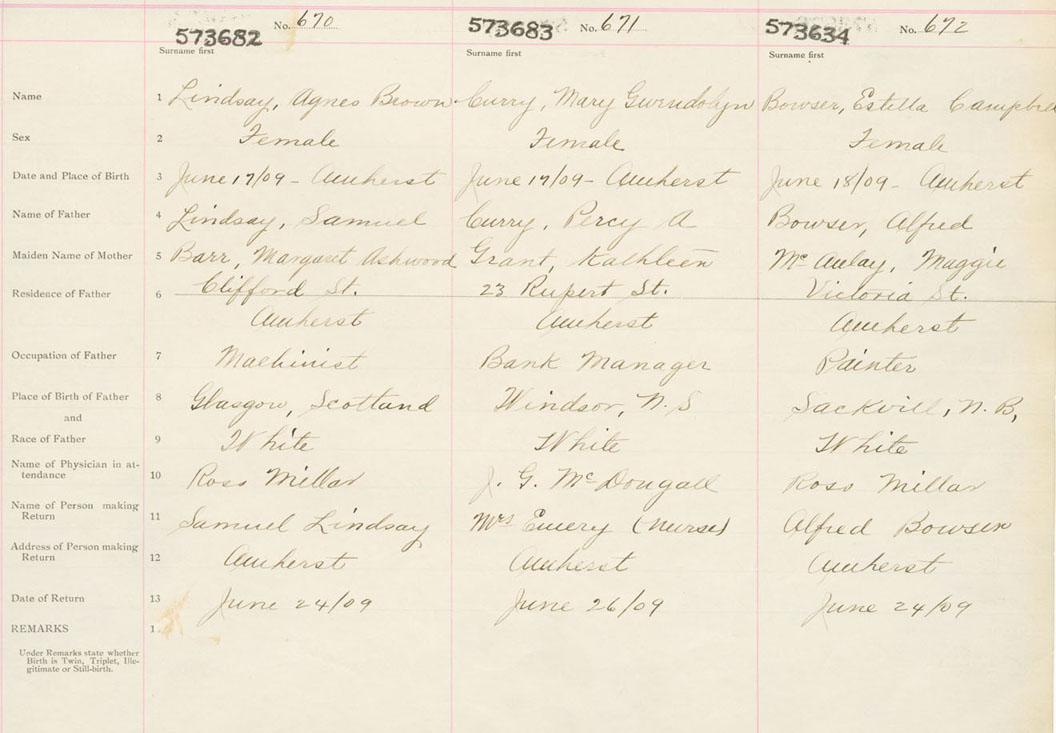 573682 No. 670 573683 No. 671 573634 No. 672
Surname first Surname first Surname first
Name 1 Lindsay, Agnes Brown Curry, Mary Gwendolyn Bowser, Estella Campbell
Sex 2 Female Female Female
Date and Place of Birth 3 June 17/09 - Amherst June 17/09 - Amherst June 18/09 - Amherst
Name of Father 4 Lindsay, Samuel Curry, Percy A Bowser, Alfred
Maiden Name of Mother 5 Barr, Margaret Ashwood Grant, Kathleen McAulay, Maggie
Residence of Father 6 Clifford St. 23 Rupert St. Victoria St.
Amherst Amherst Amherst
Occupation of Father 7 Machinist Bank Manager Painter
Place of Birth of Father 8 Glasgow, Scotland Windsor, N.S Sackvill, N.B,
and
Race of Father 9 White White White
Name of Physician in at-
tendance 10 Ross Millar J. G. McDougall Ross Millar
Name of Person making
Return 11 Samuel Lindsay Mrs Emery (Nurse) Alfred Bowser
Address of Person making
Return 12 Amherst Amherst Amherst
Date of Return 13 June 24/09 June 26/09 June 24/09
REMARKS 1.
Under Remarks state whether
Birth is Twin, Triplet, Ille-
gitimate or Still-birth.